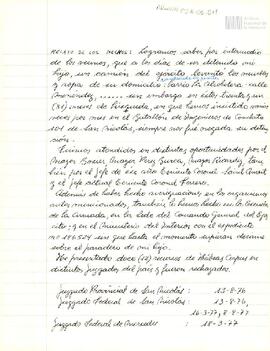 RELATO DE LOS HECHOS: Logramos saber por intermedio
de los vecinos, que a los días de ser detenida mi
hija, un camión del ejército levantó los muebles
y ropa de su domicilio: barrio La calle
sin embargo en estos
meses de búsqueda, en que hemos insistido varias
veces por mes en el Batallón de Ingenieros de Combate
101 de San Nicolás, siempre nos fue negada su deten-
sión.
Fuimos atendidos en distintas oportunidades por el
Mayor Mayor Perez Mayor Ricardo, tam-
bién por el Jefe de ese año Teniente Coronel Saint Amant y
el jefe actual Teniente Coronel Ferrero.
Además de haber hecho averiguaciones en los organismos
antes mencionados, también lo hemos hecho en los
de la Armada, en la sede del Comando General del Ejér-
cito y en el Ministerio del Interior con el expediente
nº sin que hasta el momento supieran decirme
sobre el paradero de mi hija.
He presentado doce (12) recursos de Habeas Corpus en
distintos juzgados del país y fueron rechazados.
Juzgado Provincial de San Nicolás: 13-8-76
Juzgado Federal de San Nicolás: 13-8-76,
16-3-77, 8-9-77
Juzgado Federal de Mercedes: 18-3-77